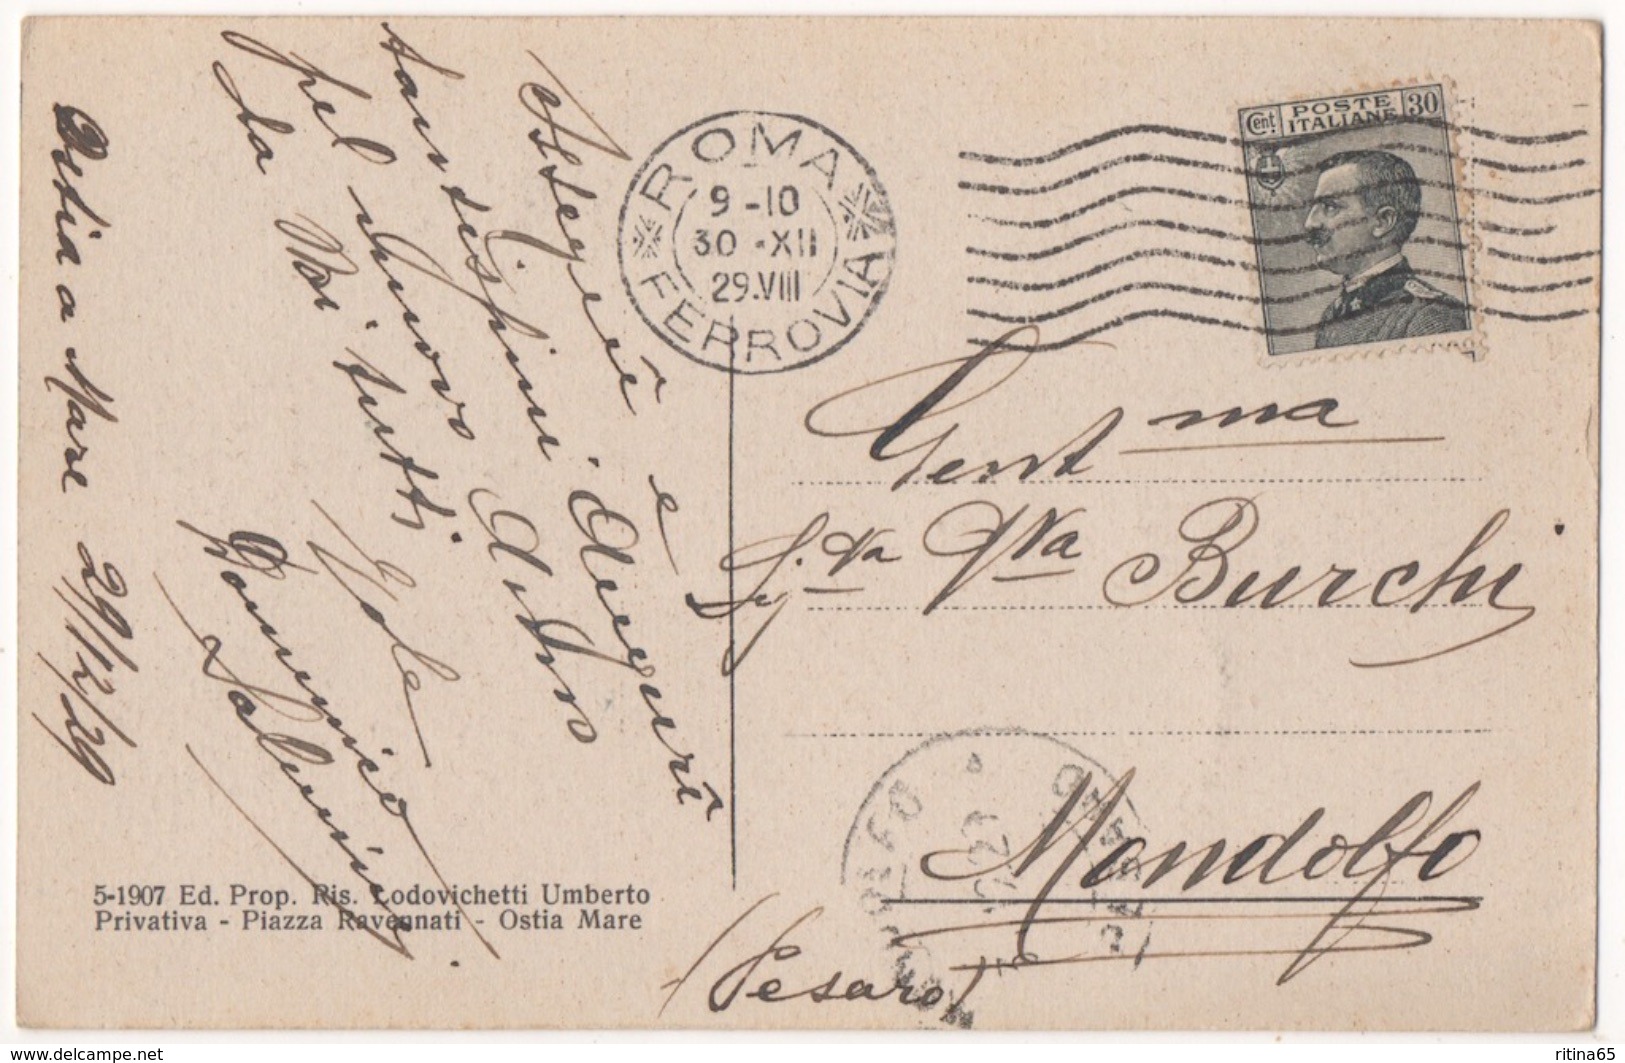 Ostia a Mare 29/12/29
Allegri e
tantissimi Augurî
pel Nuovo Anno
da Noi tutti
Jole
Domenico
5-1907 Ed. Prop. Ris. Lodovichetti Umberto
Privativa - Piazza Ravennati - Ostia Mare
ROMA
9-10
30-XII
29.VIII
FERROVIA
POSTE ITALIANE
Cent. 30
Gent ma
Sig. ra Burchi
Mondolfo
(Pesaro)
MONDOLFO
PESARO
www.delcampe.net
ritina65